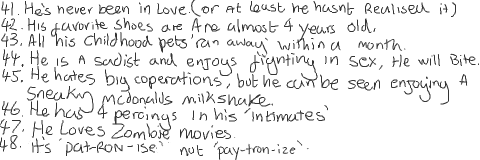 41. He's never been in Love. (or At least he hasnt Realised it)
42. His favorite shoes are Are almost 4 years old.
43. All his Childhood pets 'ran away' within a month.
44. He is A sadist and enjoys fighting in sex, He will Bite.
45. He hates big coperations, but he can be seen enjoying A
sneaky mcdonalds milkshake.
46. He has 4 percings in his 'intimates'
47. He Loves Zombie movies.
48. It's 'pat-RON-ise' not 'pay-tron-ize'.